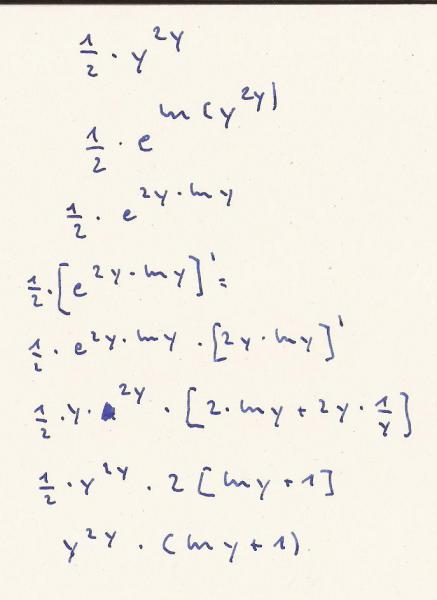 1/2 · y^(2y)
1/2 · e^(ln(y^(2y)))
1/2 · e^(2y · ln y)
1/2 · [e^(2y · ln y)]' =
1/2 · e^(2y · ln y) · [2y · ln y]'
1/2 · y · ^(2y) · [2 · ln y + 2y · 1/y]
1/2 · y^(2y) · 2 [ln y + 1]
y^(2y) · (ln y + 1)